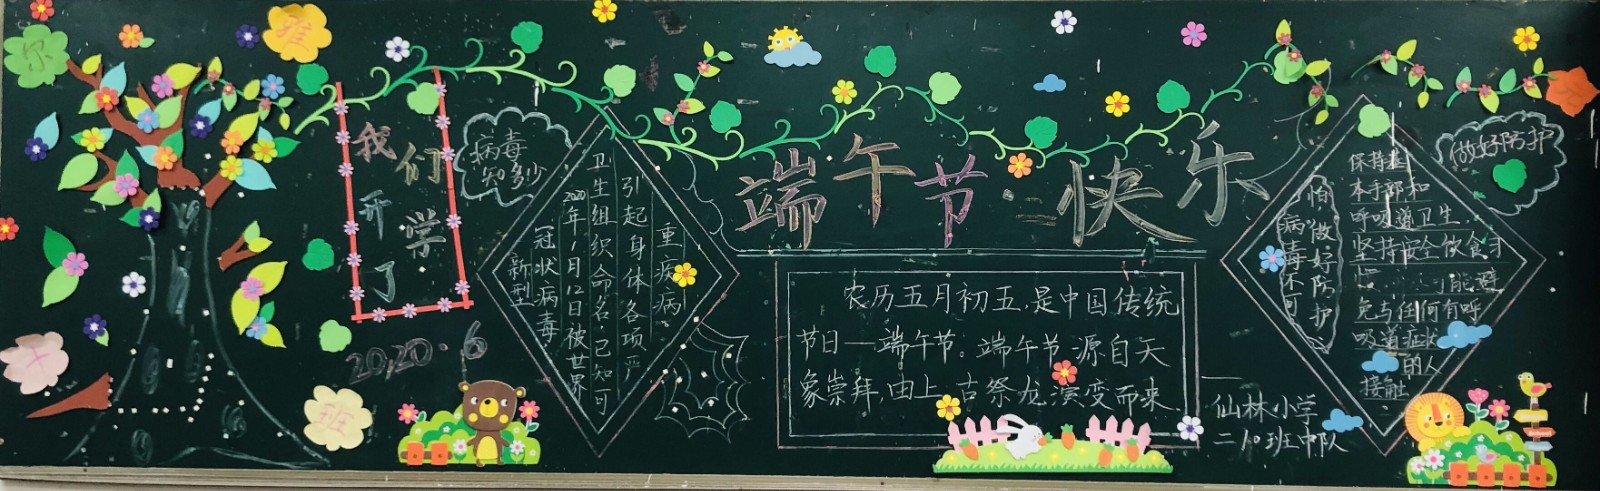 雅
十
班
我们
开学
了
2020.6
病毒
知多少
新型
冠状病毒
2020年1月12日被世界
卫生组织命名.已知可
引起身体各项严
重疾病
端午节快乐
农历五月初五,是中国传统
节日——端午节。端午节,源自天
象崇拜,由上古祭龙演变而来.
仙林小学
二10班中队
病毒不可
怕做好防护
保持基
本手部和
呼吸道卫生.
坚持安全饮食习
能避
免与任何有呼
吸道症状
的人
接触
做好防护